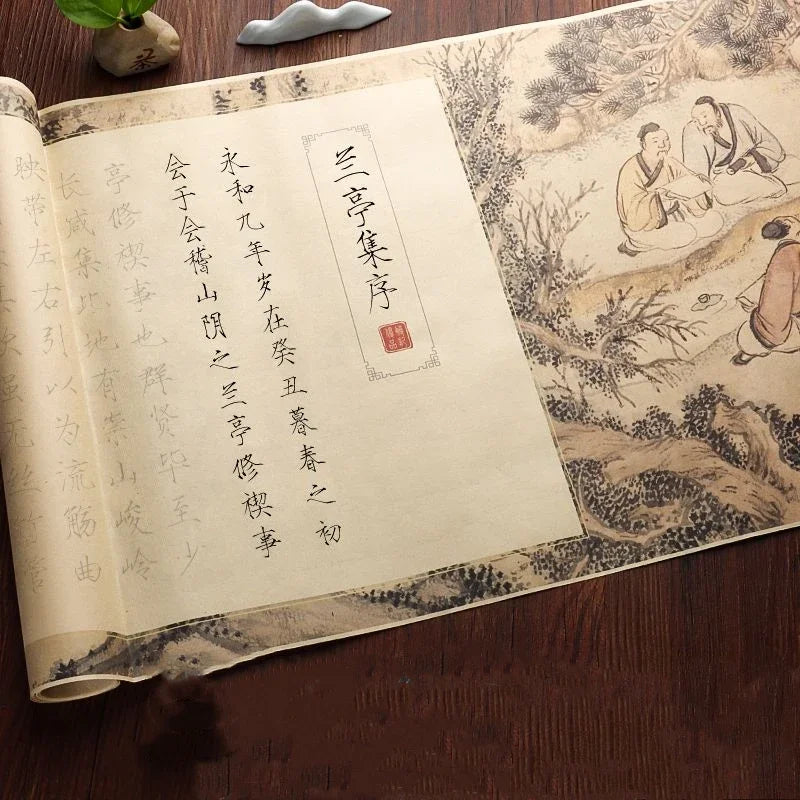 兰亭集序
永和九年岁在癸丑暮春之初
会于会稽山阴之兰亭修禊事
亭修禊事也群贤毕至少
长咸集此地有崇山峻岭
映带左右引以为流觞曲
次虽无丝竹管
茶